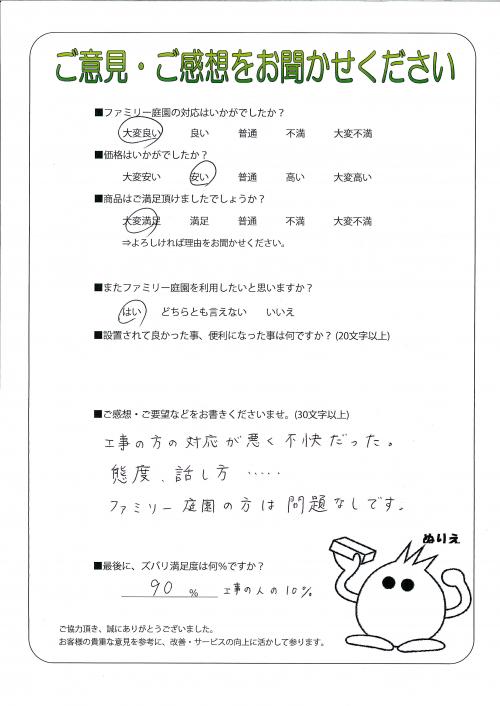 ご意見・ご感想をお聞かせください
■ファミリー庭園の対応はいかがでしたか？
大変良い 良い 普通 不満 大変不満
■価格はいかがでしたか？
大変安い 安い 普通 高い 大変高い
■商品はご満足頂けましたでしょうか？
大変満足 満足 普通 不満 大変不満
⇒よろしければ理由をお聞かせください。
■またファミリー庭園を利用したいと思いますか？
はい どちらとも言えない いいえ
■設置されて良かった事、便利になった事は何ですか？(20文字以上)
■ご感想・ご要望などをお書きくださいませ。(30文字以上)
工事の方の対応が悪く不快だった。
態度、話し方 ‥‥‥
ファミリー庭園の方は問題なしです。
ぬりえ
■最後に、ズバリ満足度は何%ですか？
90 % 工事の人の10%
ご協力頂き、誠にありがとうございました。
お客様の貴重な意見を参考に、改善・サービスの向上に活かして参ります。